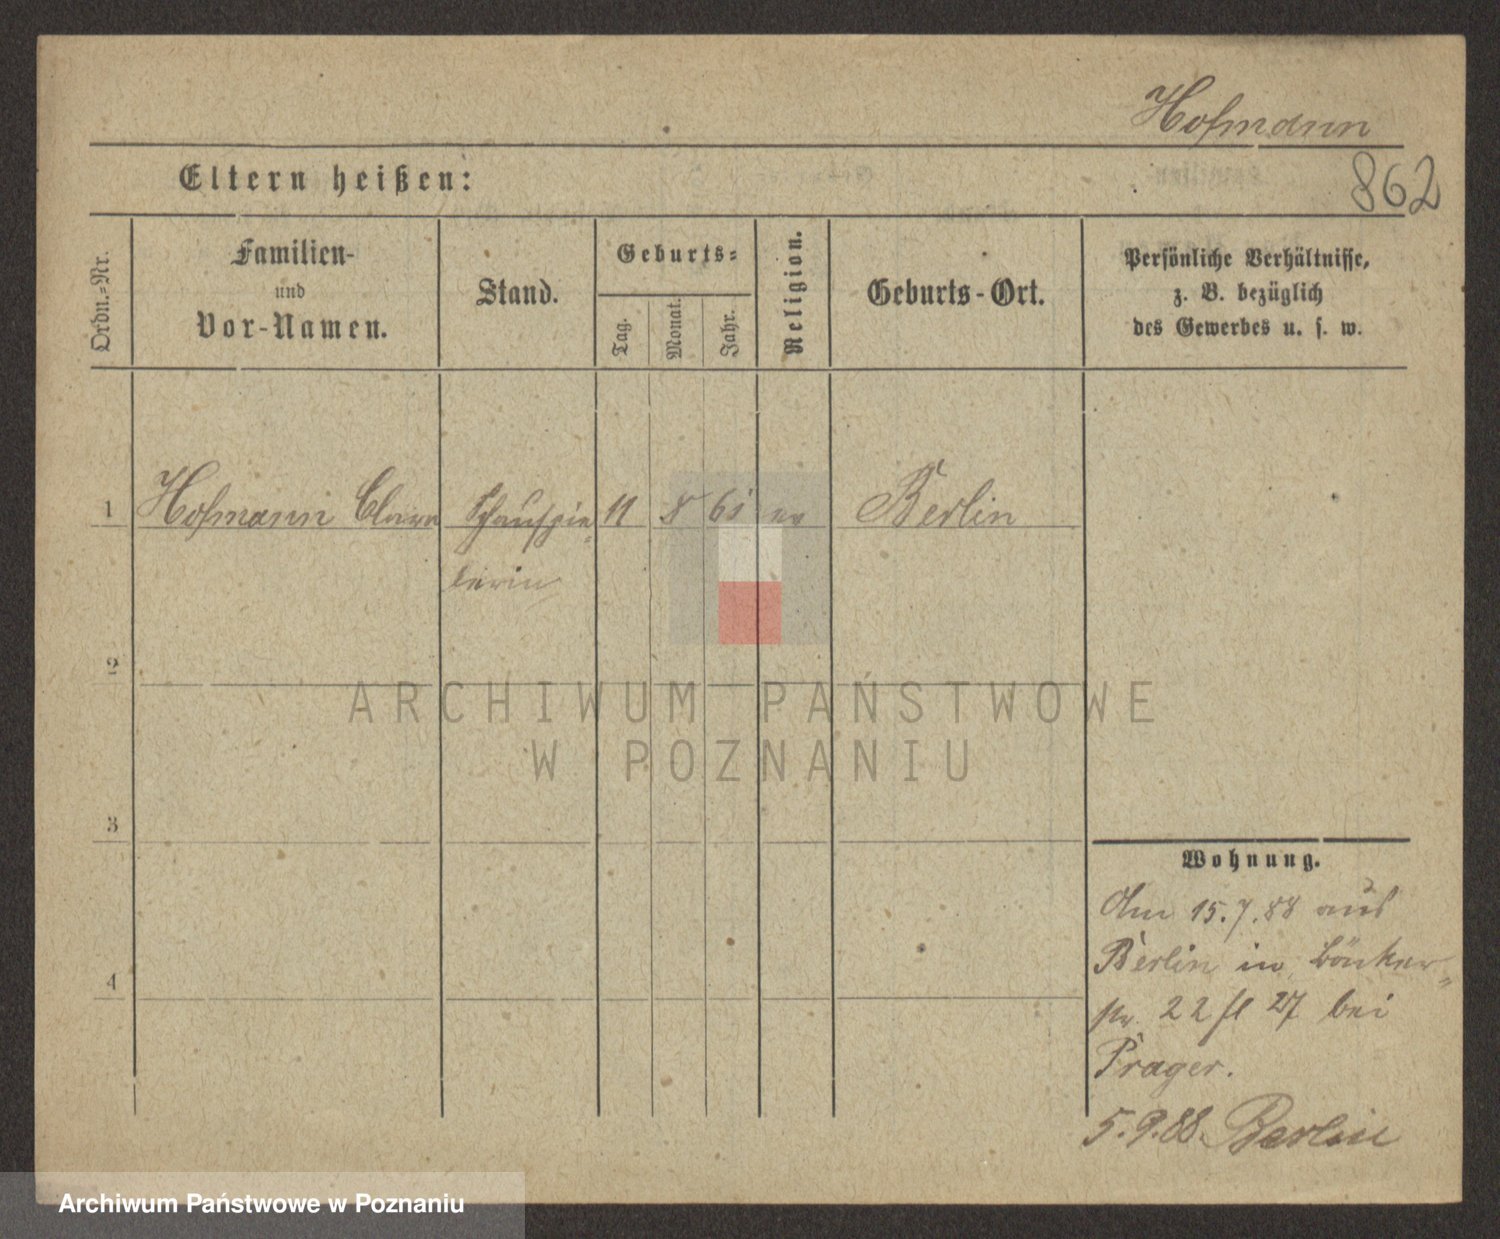 Hofmann
862
Eltern heißen:
Ordn.=Nr.
Familien-
und
Vor-Namen.
Stand.
Geburts=
Tag.
Monat.
Jahr.
Religion.
Geburts-Ort.
Persönliche Verhältnisse,
z. B. bezüglich
des Gewerbes u. s. w.
1 Hofmann Clara Schauspie= 11 8 ev Berlin
lerin
2
3
4
Wohnung.
Am 15.7.88 aus
Berlin in Bäcker=
str. 22 fl 27 bei
Prager.
5.9.88 Berlin
ARCHIWUM PAŃSTWOWE
W POZNANIU
Archiwum Państwowe w Poznaniu